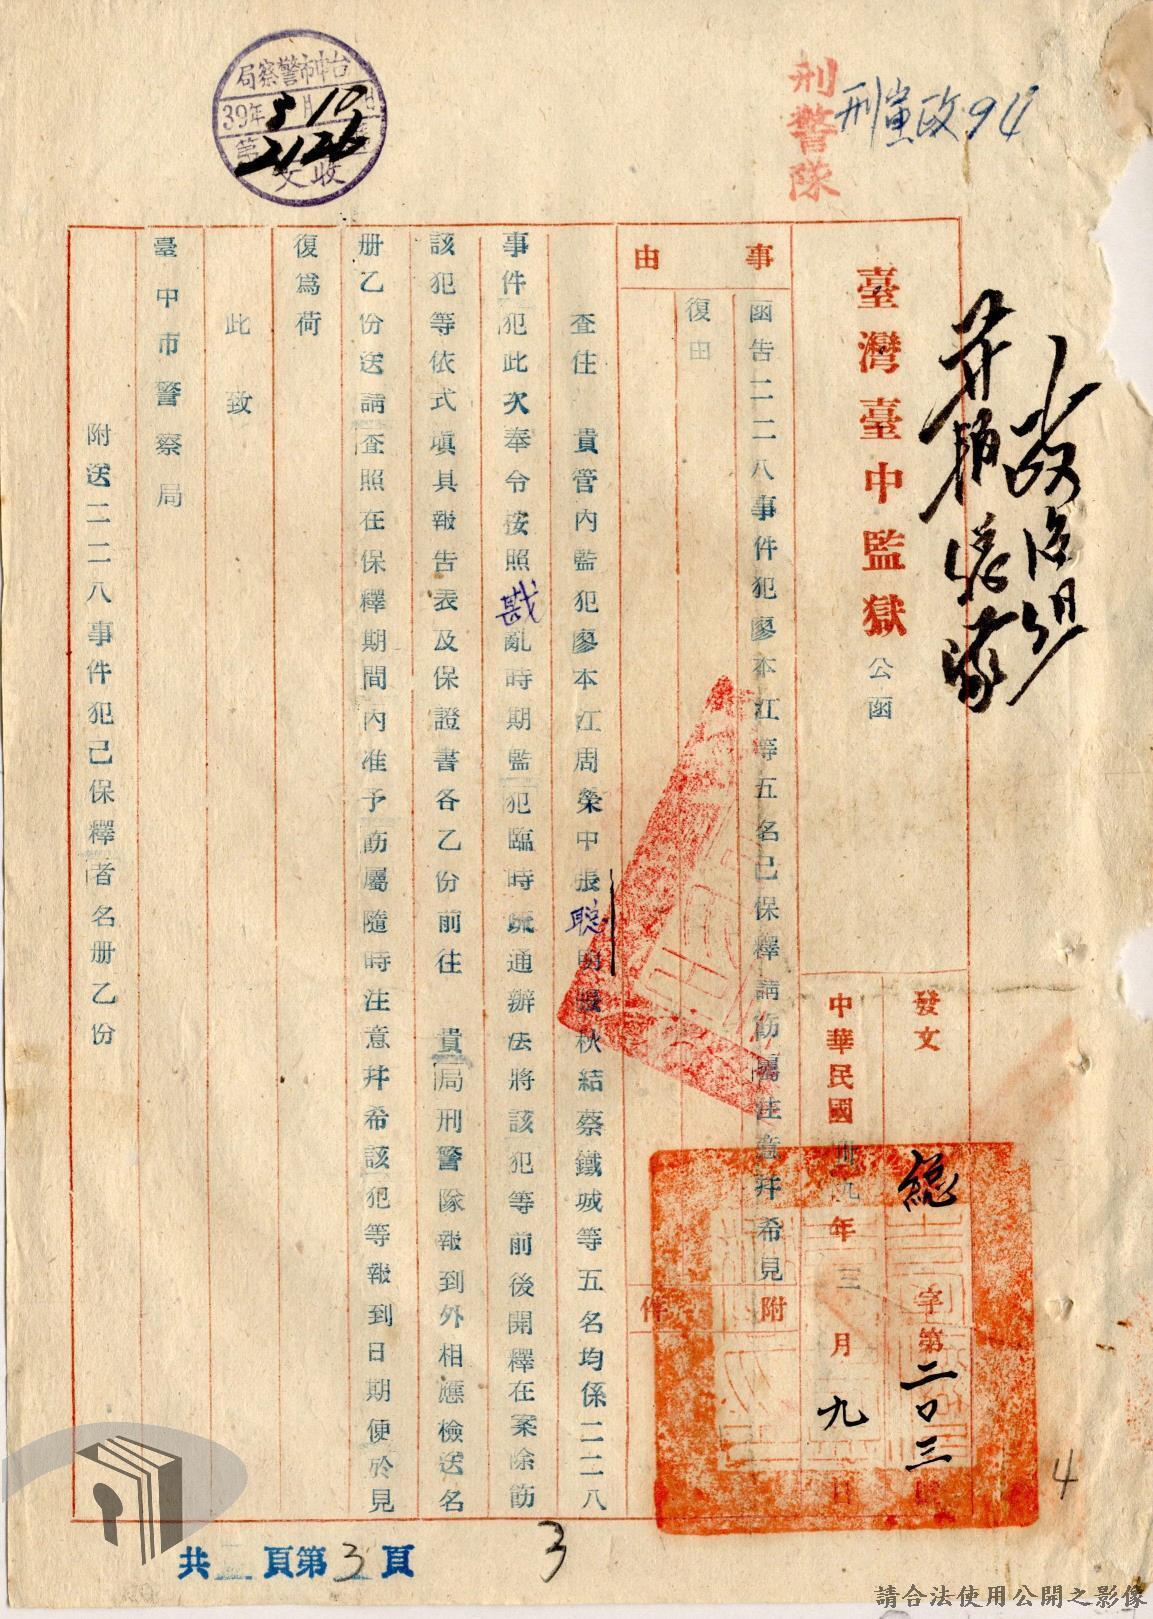 刑警隊
刑黨政94
台中市警察局
39年3月10日
第2126
收文
臺灣臺中監獄公函
發文
總字第二〇三
中華民國卅九年三月九日
事由
函告二二八事件犯廖本江等五名已保釋請飭屬注意幷希見
復由
附件
查住 貴管內監犯廖本江周榮中張聰明張秋結蔡鐵城等五名均係二二八
事件犯此次奉令按照戡亂時期監犯臨時疏通辦法將該犯等前後開釋在案除飭
該犯等依式塡具報告表及保證書各乙份前往 貴局刑警隊報到外相應檢送名
册乙份送請查照在保釋期間內准予飭屬隨時注意幷希該犯等報到日期便於見
復爲荷
此致
臺中市警察局
附送二二八事件犯已保釋者名册乙份
共二頁第3頁
3
4
請合法使用公開之影像